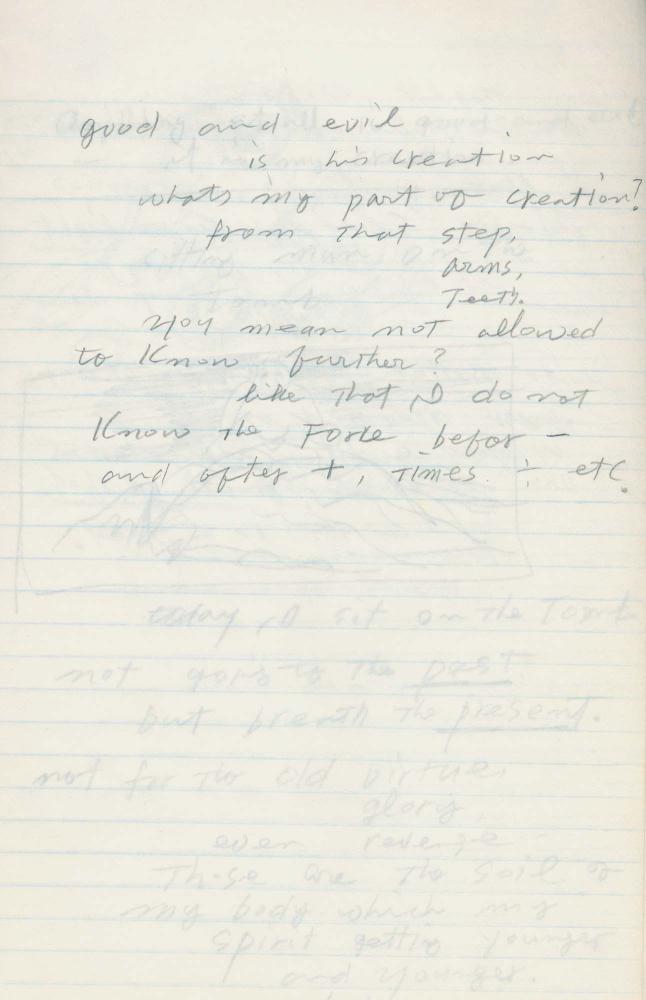 good and evil
is his creation
whats my part of creation?
from that step,
arms,
Teeth.
you mean not allowed
to Know further?
like that, I do not
Know the Force befor -
and after +, Times ÷ etc.
today, I sit on the Tomb
not going to the past
but breath the present.
not for the old virtue,
glory,
even revenge -
These are the soil of
my body which my
spirit getting younger
and younger.